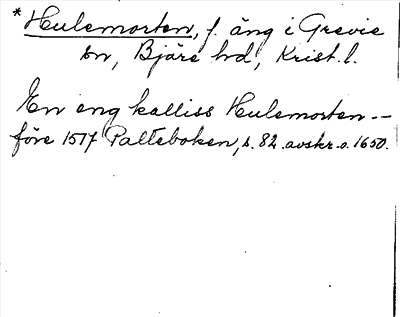 *Hulemorten, f. äng i Grevie
sn, Bjäre hd, Krist. l.
En eng kalliss Hulemorten --
före 1517 Palteboken, s. 82. avskr. o. 1650.